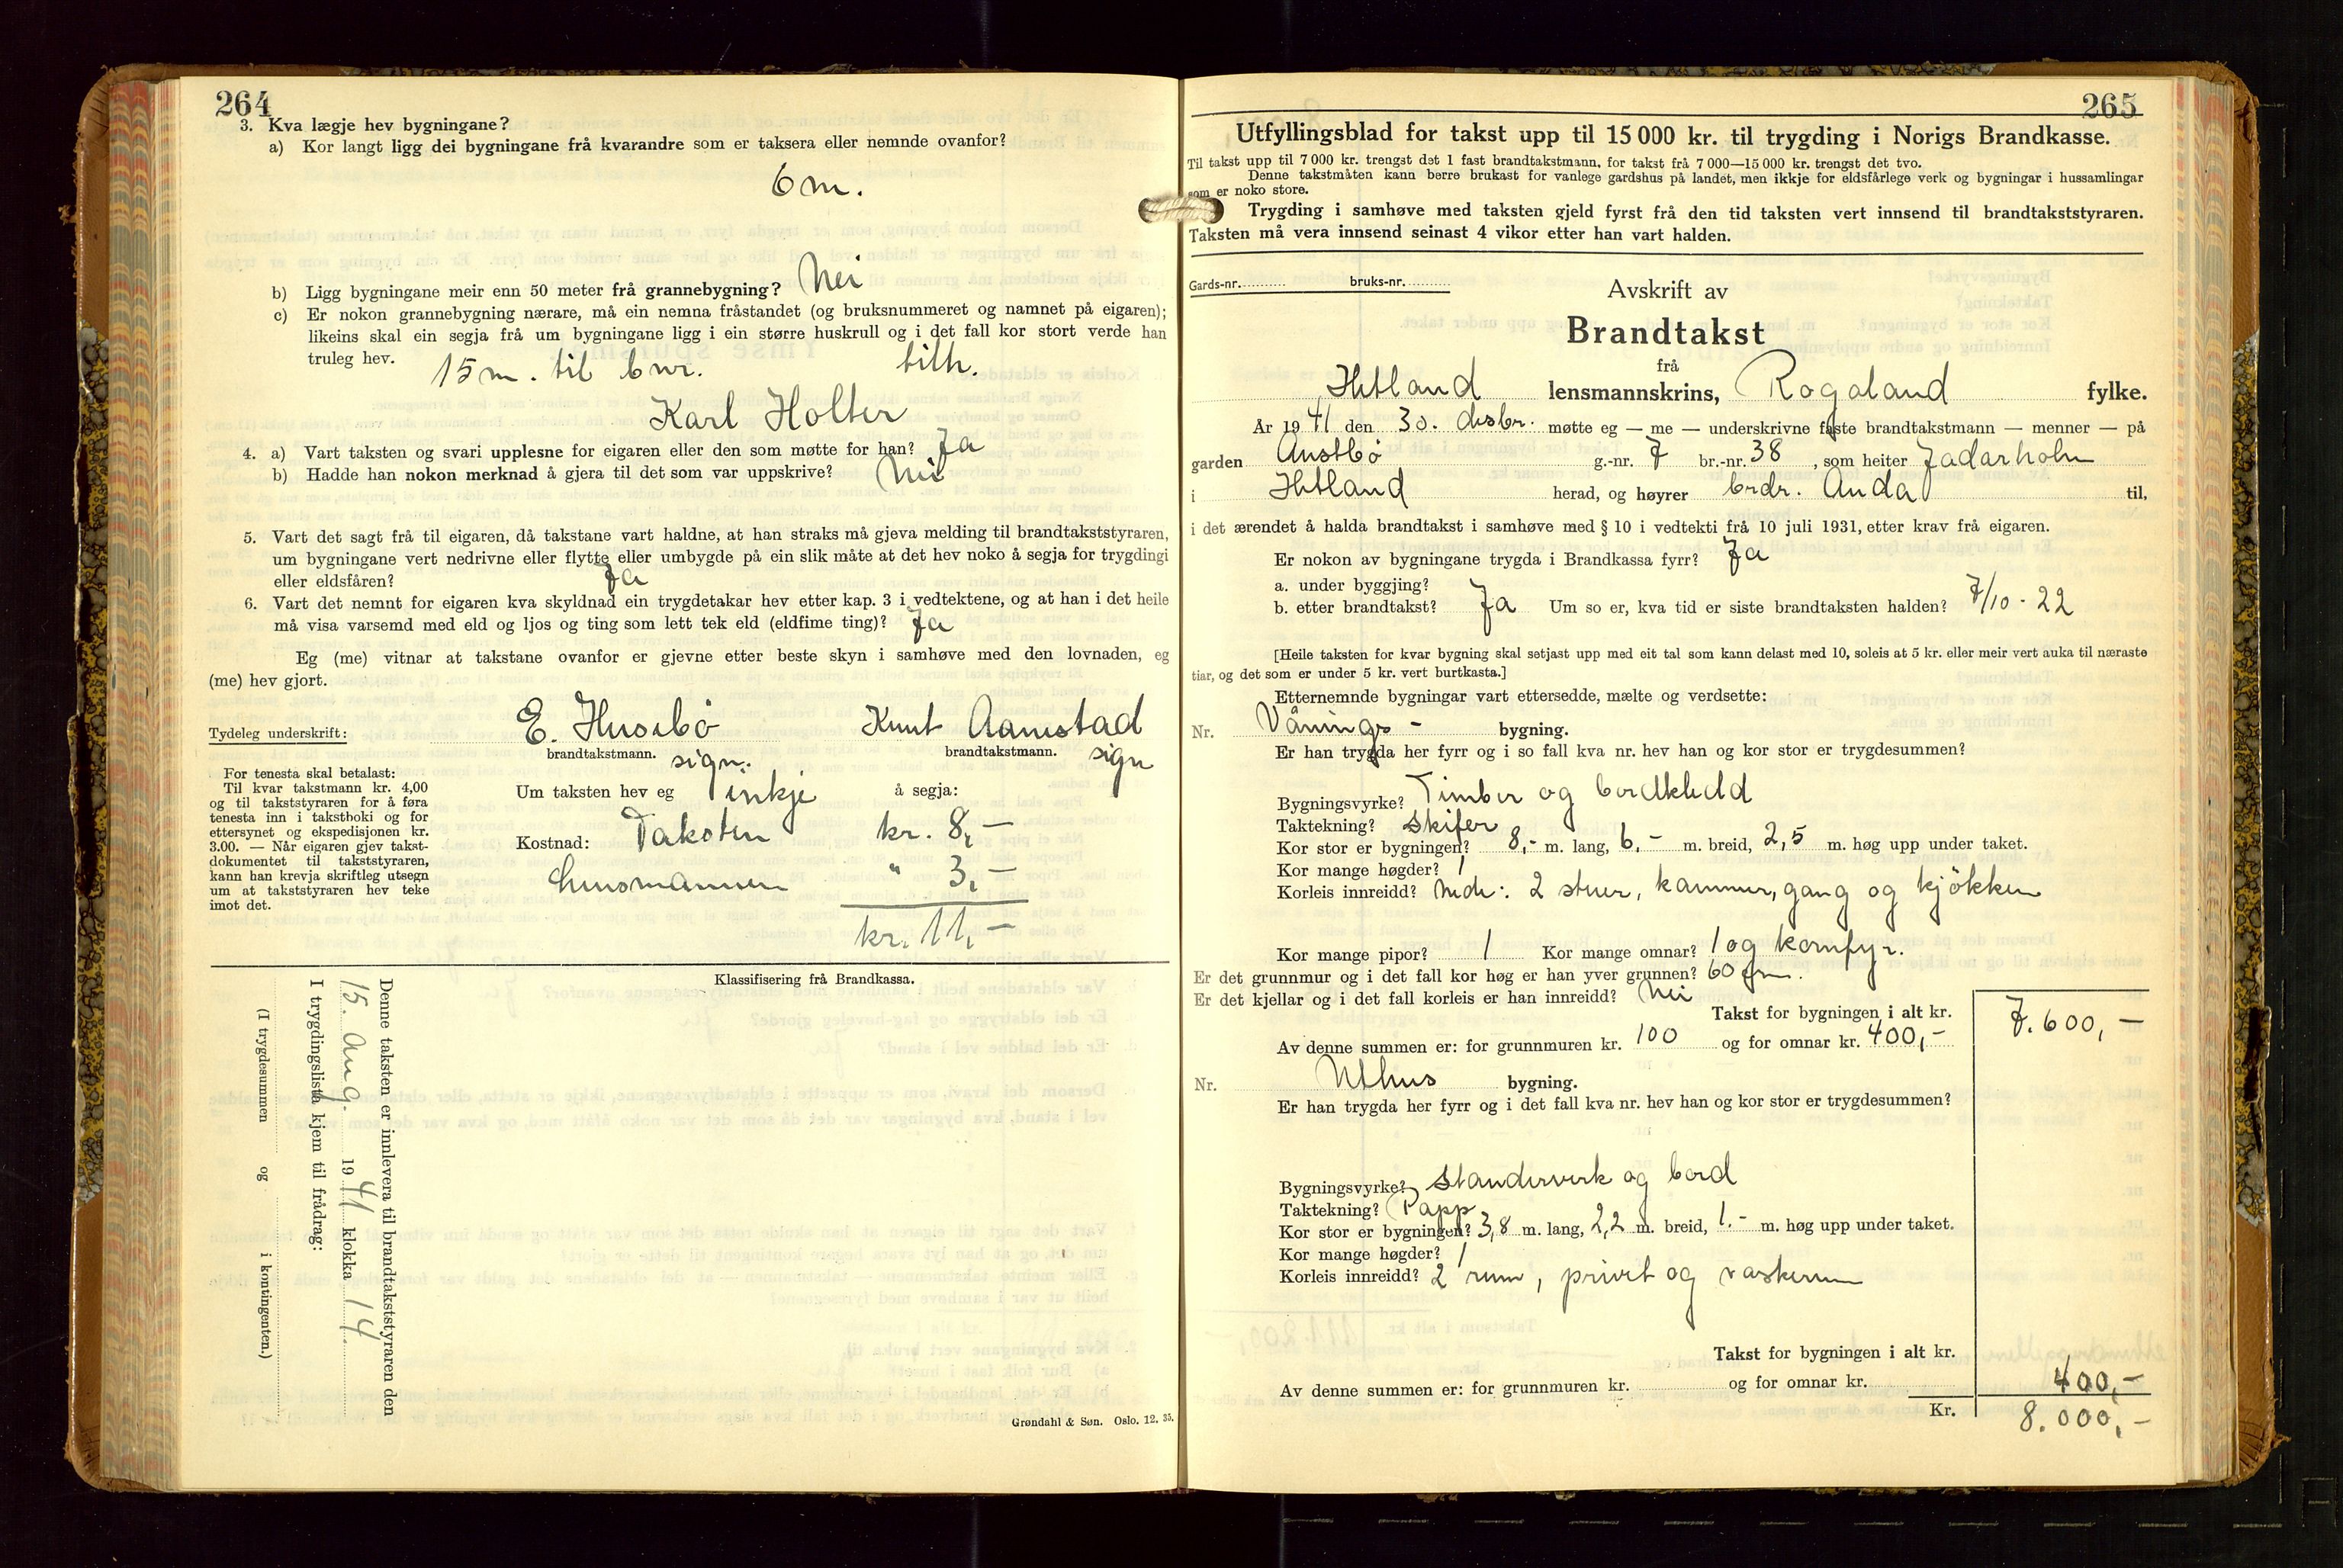 264
3. Kva lægje hev bygningane?
a) Kor langt ligg dei bygningane frå kvarandre som er taksera eller nemnde ovanfor?
6 m.
b) Ligg bygningane meir enn 50 meter frå grannebygning? Nei
c) Er nokon grannebygning nærare, må ein nemna fråstandet (og bruksnummeret og namnet på eigaren);
likeins skal ein segja frå um bygningane ligg i ein større huskrull og i det fall kor stort verde han
truleg hev. 15 m. til bnr. tilh.
Karl Holter
4. a) Vart taksten og svari upplesne for eigaren eller den som møtte for han? Ja
b) Hadde han nokon merknad å gjera til det som var uppskrive? Nei
5. Vart det sagt frå til eigaren, då takstane vart haldne, at han straks må gjeva melding til brandtakststyraren,
um bygningane vert nedrivne eller flytte eller umbygde på ein slik måte at det hev noko å segja for trygdingi
eller eldsfåren? Ja
6. Vart det nemnt for eigaren kva skyldnad ein trygdetakar hev etter kap. 3 i vedtektene, og at han i det heile
må visa varsemd med eld og ljos og ting som lett tek eld (eldfime ting)? Ja
Eg (me) vitnar at takstane ovanfor er gjevne etter beste skyn i samhøve med den lovnaden, eg
(me) hev gjort.
Tydeleg underskrift: E. Husebø Knut Aamstad
brandtakstmann. sign. brandtakstmann. sign
For tenesta skal betalast:
Til kvar takstmann kr. 4,00
og til takststyraren for å føra
tenesta inn i takstboki og for
ettersynet og ekspedisjonen kr.
3.00. — Når eigaren gjev takst-
dokumentet til takststyraren,
kann han krevja skriftleg utsegn
um at takststyraren hev teke
imot det.
Um taksten hev eg inkje å segja:
Kostnad: Taksten kr. 8,—
lensmannen " 3,—
kr. 11,—
Klassifisering frå Brandkassa.
Denne taksten er innlevera til brandtakststyraren den
15. Aug. 1941 klokka 14.
I trygdingslista kjem til frådrag:
(I trygdesummen og i kontingenten.)
Grøndahl & Søn. Oslo. 12. 35.
265
Utfyllingsblad for takst upp til 15 000 kr. til trygding i Norigs Brandkasse.
Til takst upp til 7 000 kr. trengst det 1 fast brandtakstmann, for takst frå 7 000—15 000 kr. trengst det tvo.
Denne takstmåten kann berre brukast for vanlege gardshus på landet, men ikkje for eldsfårlege verk og bygningar i hussamlingar
som er noko store.
Trygding i samhøve med taksten gjeld fyrst frå den tid taksten vert innsend til brandtakststyraren.
Taksten må vera innsend seinast 4 vikor etter han vart halden.
Gards-nr. bruks-nr.
Avskrift av
Brandtakst
frå
Hetland lensmannskrins, Rogaland fylke.
År 1941 den 30. desbr. møtte eg — me — underskrivne faste brandtakstmann — menner — på
garden Austbø g.-nr. 7 br.-nr. 38, som heiter Jadarholm
i Hetland herad, og høyrer brdr. Anda til,
i det ærendet å halda brandtakst i samhøve med § 10 i vedtekti frå 10 juli 1931, etter krav frå eigaren.
Er nokon av bygningane trygda i Brandkassa fyrr? Ja
a. under byggjing?
b. etter brandtakst? Ja Um so er, kva tid er siste brandtaksten halden? 7/10-22
[Heile taksten for kvar bygning skal setjast upp med eit tal som kann delast med 10, soleis at 5 kr. eller meir vert auka til næraste
tiar, og det som er under 5 kr. vert burtkasta.]
Etternemnde bygningar vart ettersedde, mælte og verdsette:
Nr. Vånings- bygning.
Er han trygda her fyrr og i so fall kva nr. hev han og kor stor er trygdesummen?
Bygningsvyrke? Timber og bordkledd
Taktekning? skifer
Kor stor er bygningen? 8,- m. lang, 6,- m. breid, 2,5 m. høg upp under taket.
Kor mange høgder? 1
Korleis innreidd? Nede: 2 stuer, kammer, gang og kjøkken
Kor mange pipor? 1 Kor mange omnar? 1 og komfyr.
Er det grunnmur og i det fall kor høg er han yver grunnen? 60 cm.
Er det kjellar og i det fall korleis er han innreidd? Nei
Takst for bygningen i alt kr. 7.600,—
Av denne summen er: for grunnmuren kr. 100 og for omnar kr. 400,-
Nr. Uthus bygning.
Er han trygda her fyrr og i det fall kva nr. hev han og kor stor er trygdesummen?
Bygningsvyrke? standerverk og bord
Taktekning? Papp
Kor stor er bygningen? 3,8 m. lang, 2,2 m. breid, 1.- m. høg upp under taket.
Kor mange høgder? 1
Korleis innreidd? 2 rum, privet og vaskerum
Takst for bygningen i alt kr.
Av denne summen er: for grunnmuren kr. og for omnar kr. 400,-
Kr. 8.000,-